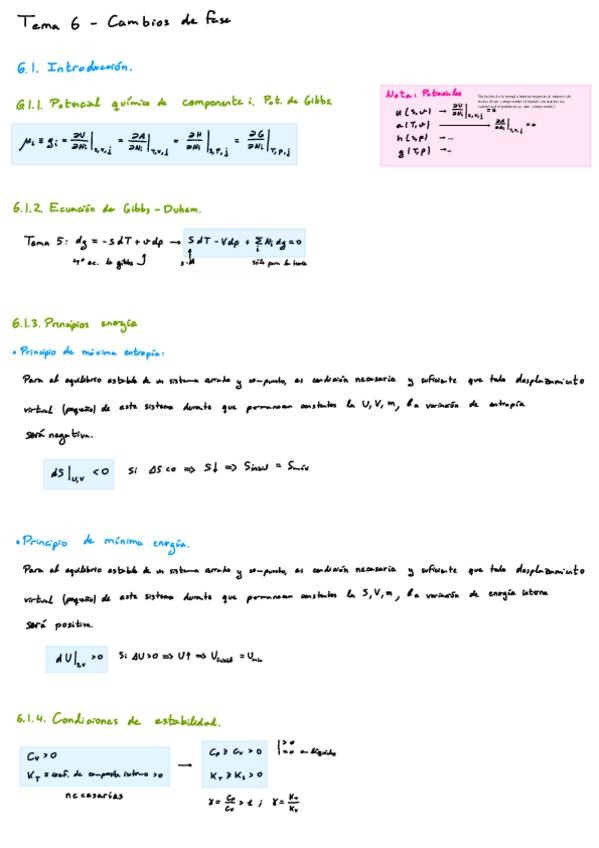 Tema 6 - Cambios de fase
6.1. Introducción.
6.1.1. Potencial químico de componente i. Pot. de Gibbs
μi ≡ gi = ∂U/∂Ni|s,v,j = ∂A/∂Ni|T,v,j = ∂H/∂Ni|s,P,j = ∂G/∂Ni|T,P,j
Nota: Potenciales
u(s,v) → ∂U/∂Ni|s,v,j = μ
a(T,v) → ∂A/∂Ni|T,v,j = μ
h(s,p) → ...
g(T,p) → ...
6.1.2. Ecuación de Gibbs-Duhem.
Tema 5: dg = -s dT + v dp → S dT - V dp + Σi Ni dg = 0
4ª ec. de gibbs
6.1.3. Principios energía
• Principio de máxima entropía:
Para el equilibrio estable de un sistema cerrado y compuesto, es condición necesaria y suficiente que todo desplazamiento
virtual (pequeño) de este sistema durante que permanecen constantes la U, V, m, la variación de entropía
será negativa.
dS|U,V < 0 Si ΔS<0 ⇒ S↓ ⇒ S = Smáx
• Principio de mínima energía.
Para el equilibrio estable de un sistema cerrado y compuesto, es condición necesaria y suficiente que todo desplazamiento
virtual (pequeño) de este sistema durante que permanecen constantes la S, V, m, la variación de energía interna
será positiva.
dU|s,v > 0 Si ΔU>0 ⇒ U↑ ⇒ U = Umin
6.1.4. Condiciones de estabilidad.
Cv > 0 → Cp ≥ Cv > 0
KT = coef. de >0 KT ≥ Ks > 0
necesarias γ = Cp/Cv > 1 ; γ =